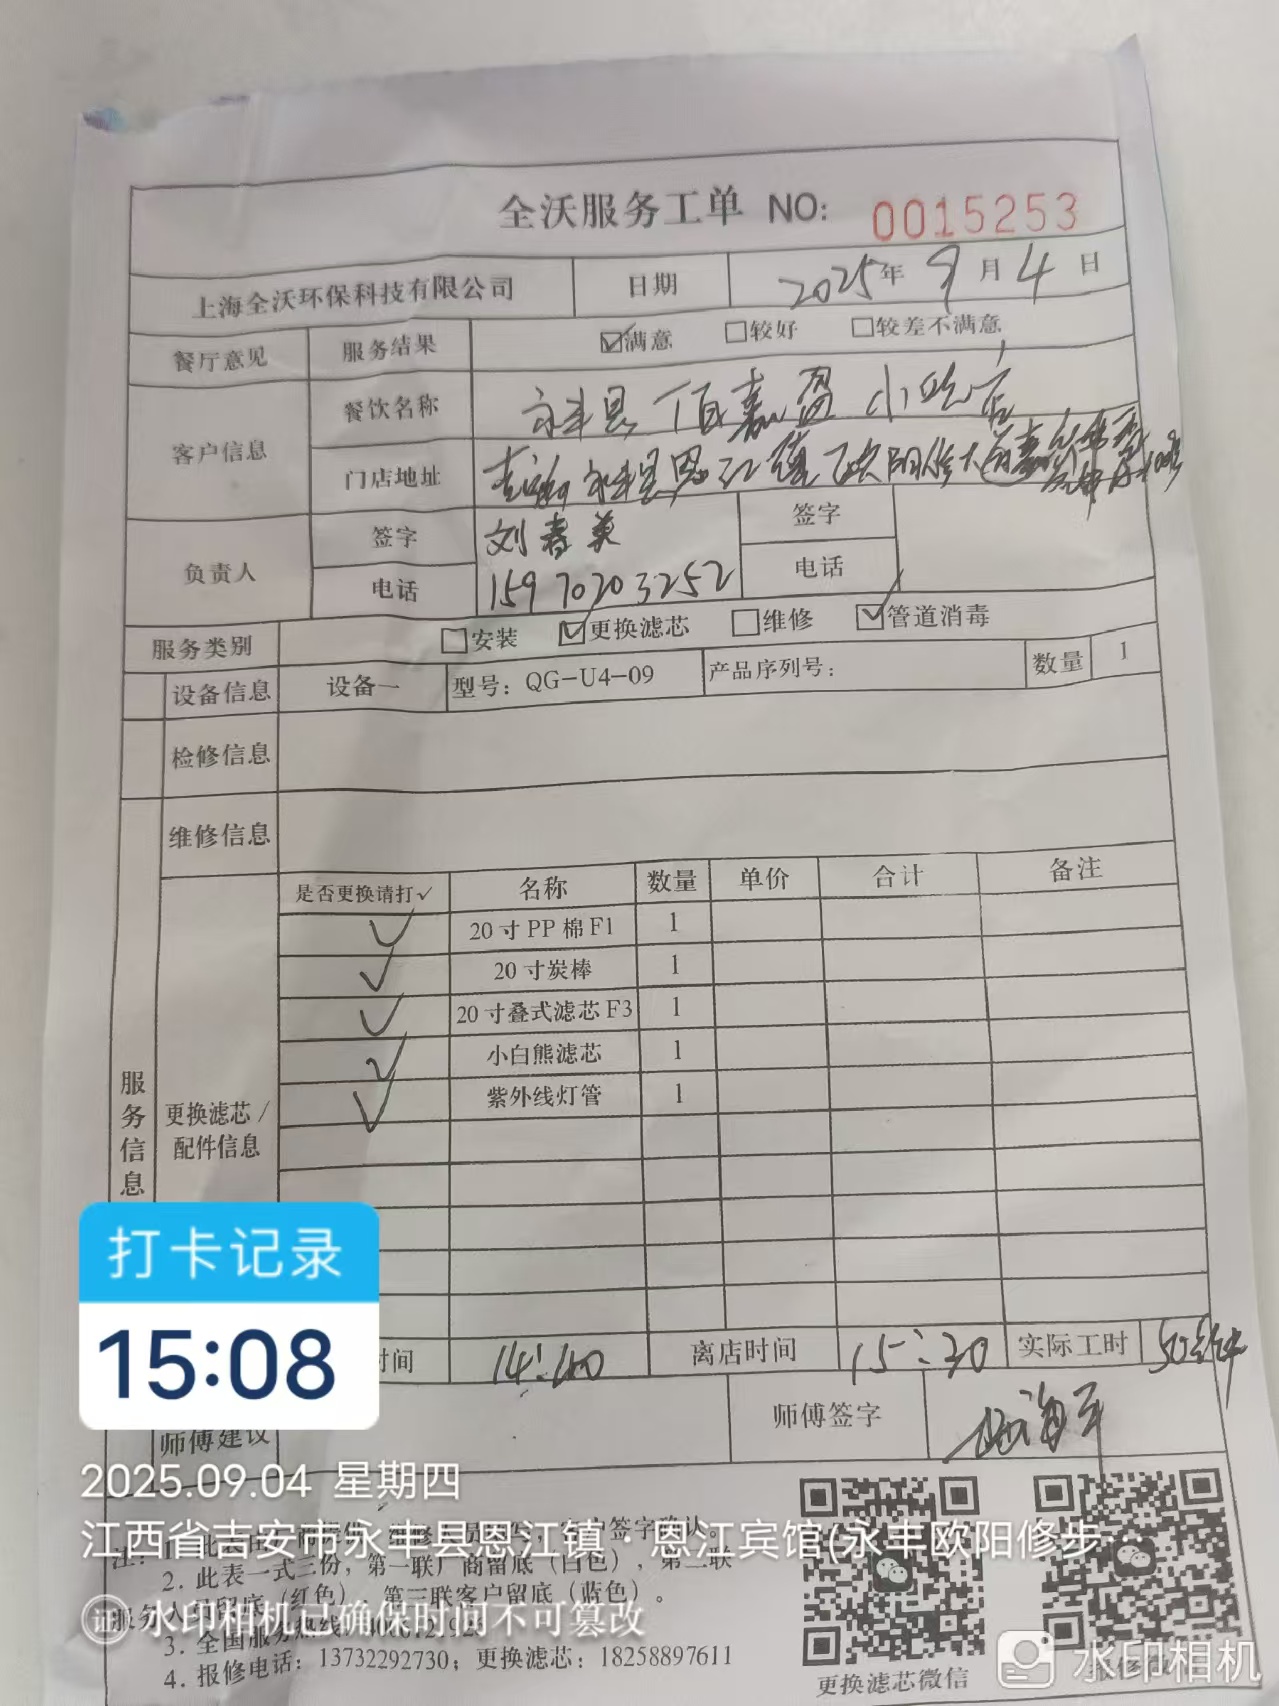 全沃服务工单 NO: 0015253
上海全沃环保科技有限公司 日期 2025年 9月 4日
餐厅意见 服务结果 ☑满意 □较好 □较差不满意
客户信息 餐饮名称 永丰县佰嘉盈小吃店
门店地址 永丰县恩江镇欧阳修大
负责人 签字 刘春英 签字
电话 15970203252 电话
服务类别 □安装 ☑更换滤芯 □维修 ☑管道消毒
设备信息 设备一 型号:QG-U4-09 产品序列号: 数量 1
检修信息
维修信息
服务信息
更换滤芯/配件信息
是否更换请打✓ 名称 数量 单价 合计 备注
✓ 20寸PP棉F1 1
✓ 20寸炭棒 1
✓ 20寸叠式滤芯F3 1
✓ 小白熊滤芯 1
✓ 紫外线灯管 1
打卡记录
15:08
时间 14:40 离店时间 15:30 实际工时 50分钟
师傅建议 师傅签字
2025.09.04 星期四
江西省吉安市永丰县恩江镇·恩江宾馆(永丰欧阳修步
签字确认。
2. 此表一式三份,第一联厂商留底(白色),第二联
留底(红色) 第三联客户留底(蓝色)。
水印相机已确保时间不可篡改
3. 全国服务热线
4. 报修电话:13732292730;更换滤芯:18258897611
更换滤芯微信
水印相机